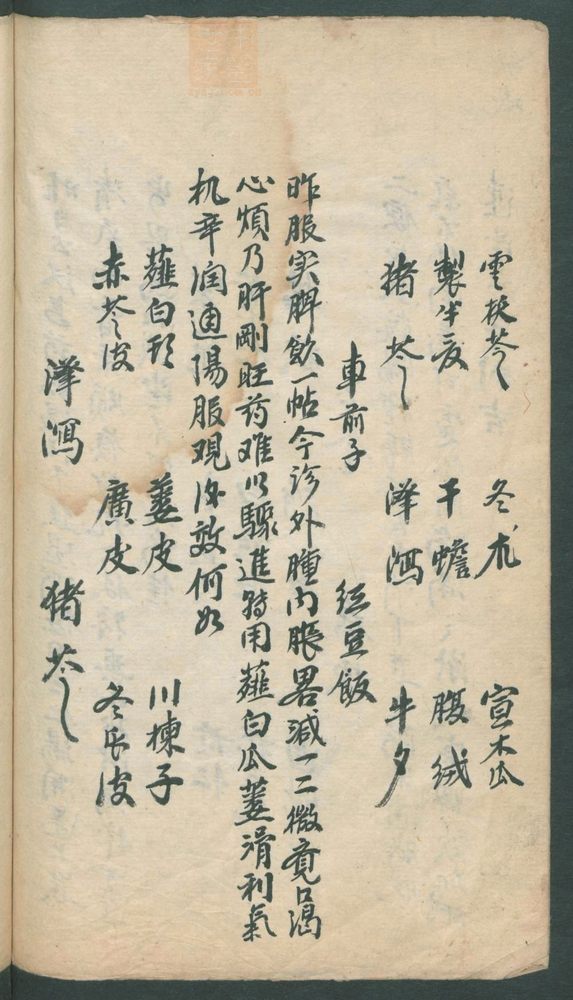 雲扶苓 冬朮 宣木瓜
製半夏 干蟾 腹绒
猪苓 澤瀉 牛夕
車前子 红豆飯
昨服实脾飲一帖今诊外腫内脹畧減一二微覔口渴
心煩乃肝剛旺药难以驟進特用薤白瓜蒌滑利氣
机辛润通陽服覌後效何如
薤白頭 蒌皮 川楝子
赤苓皮 廣皮 冬瓜皮
澤瀉 猪苓